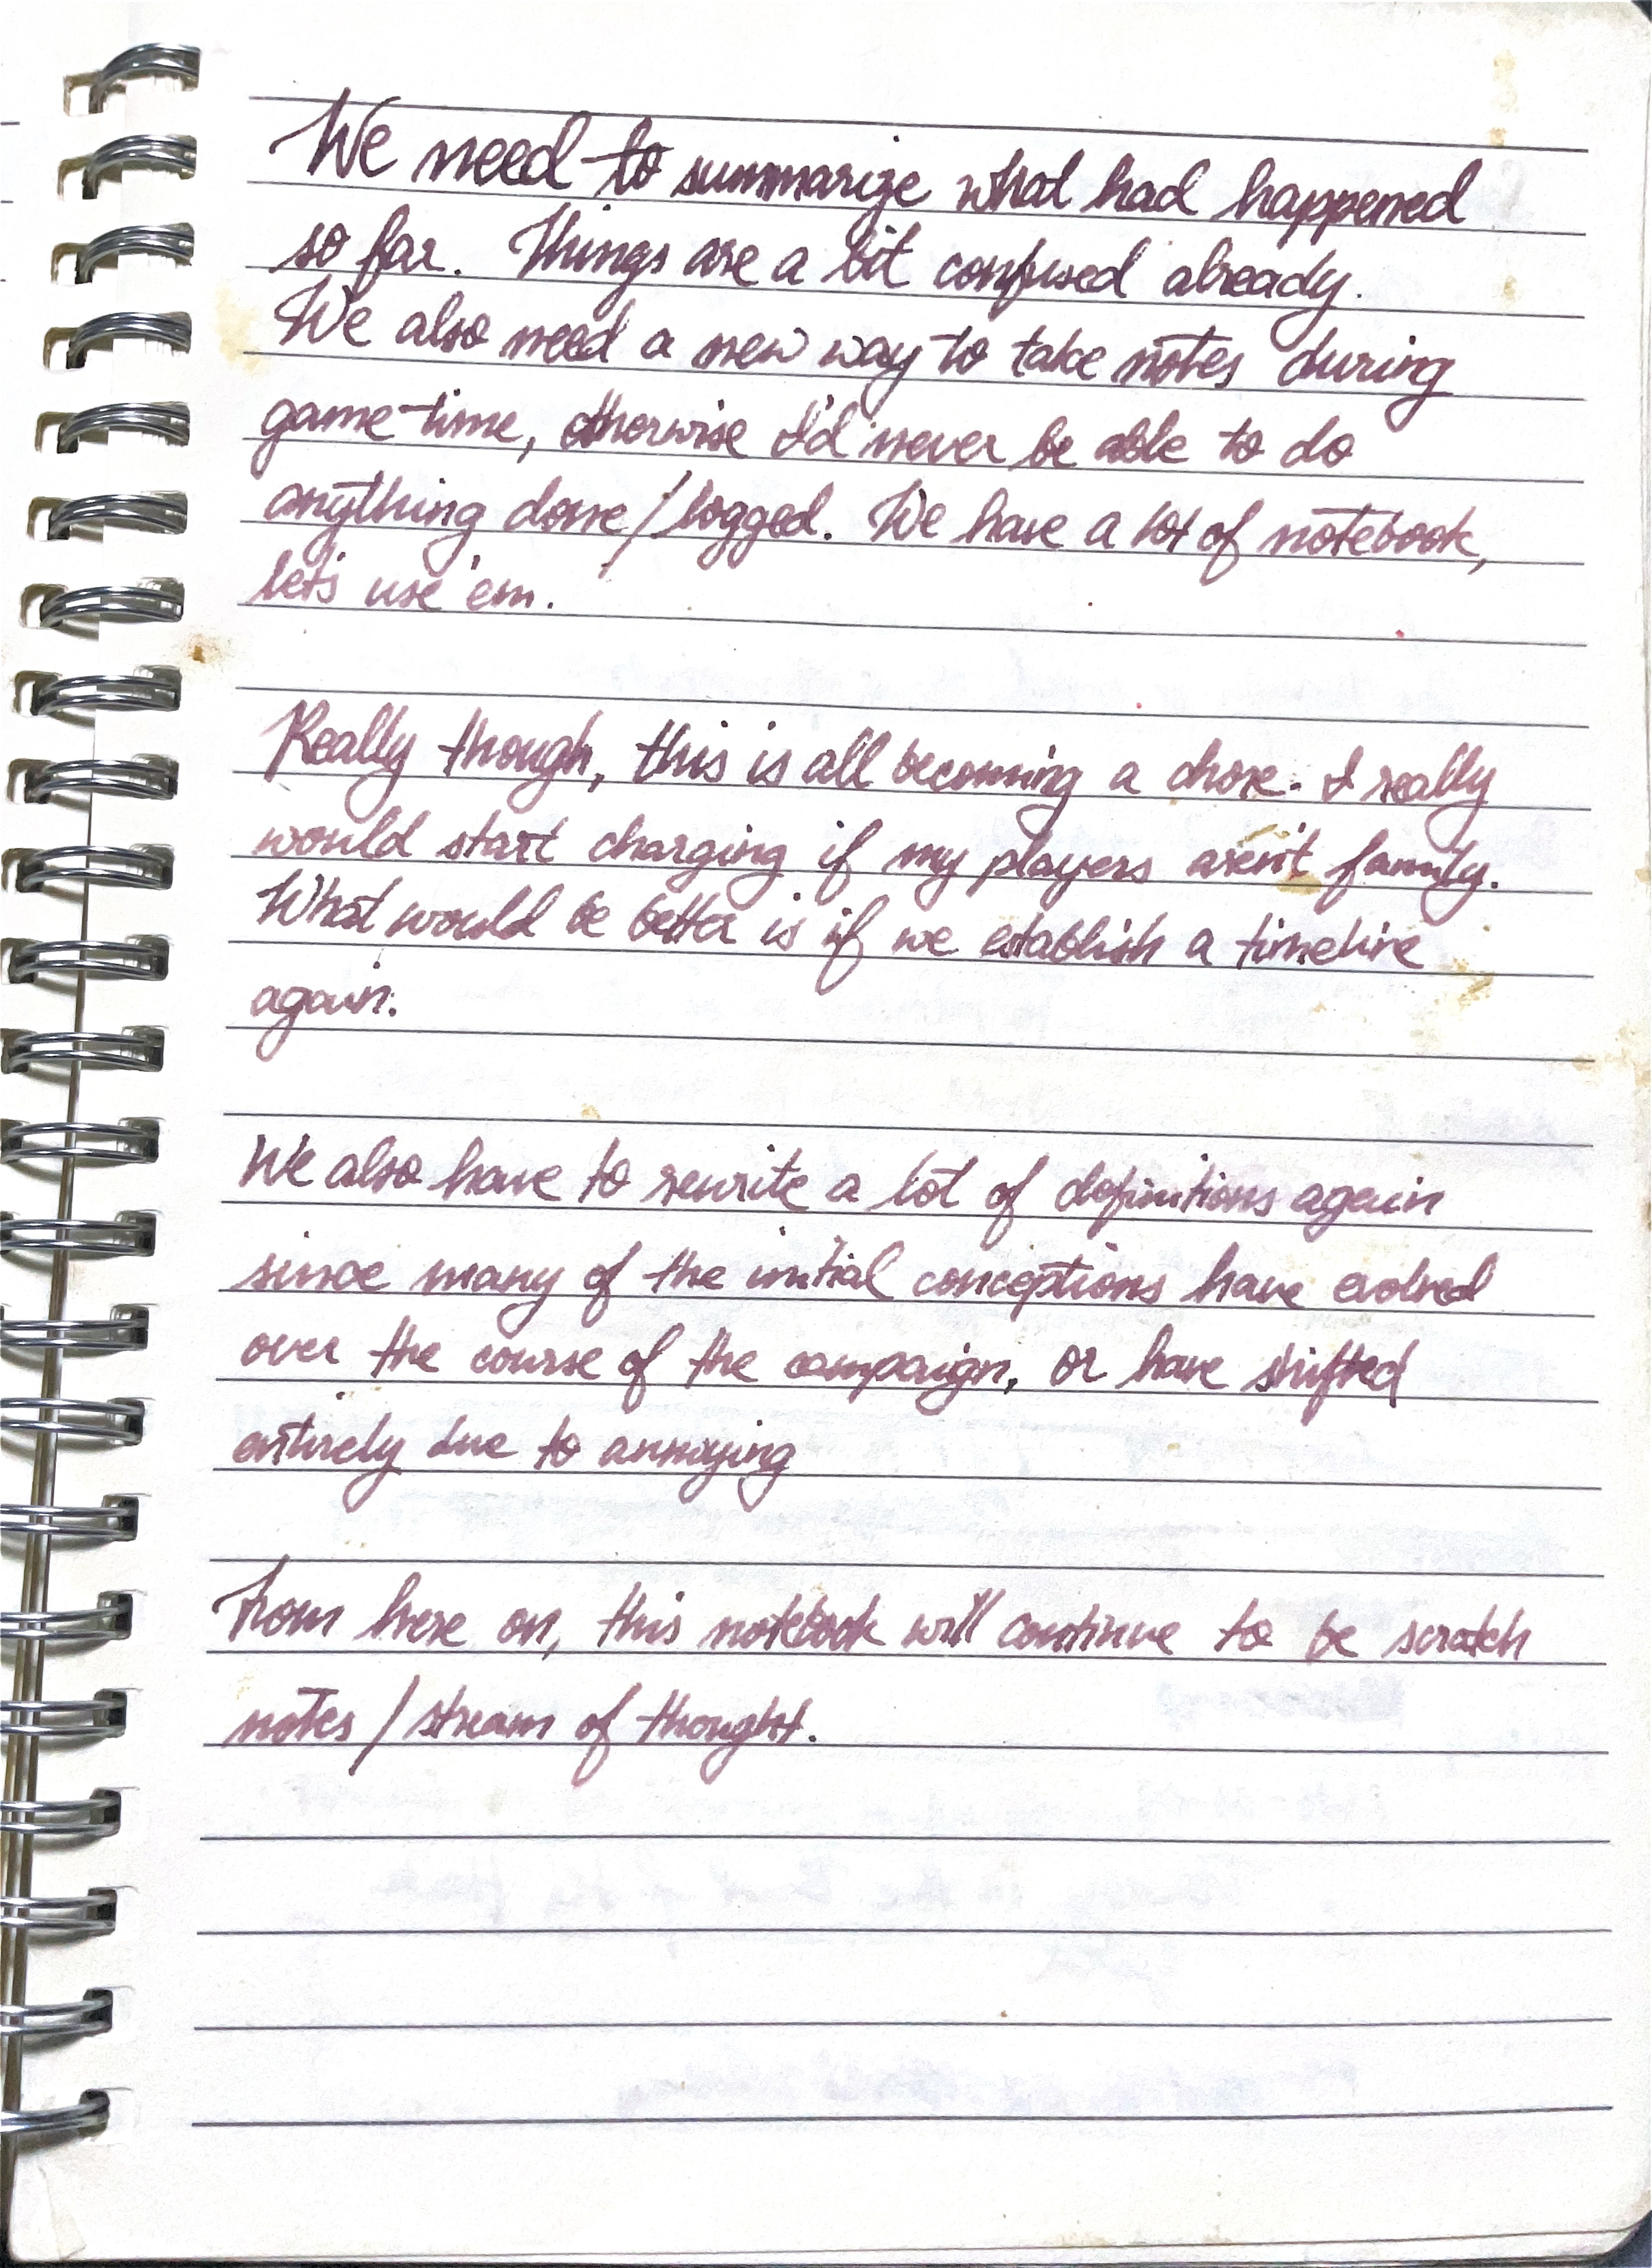 We need to summarize what had happened
so far. Things are a bit confused already.
We also need a new way to take notes during
game-time, otherwise I'd never be able to do
anything done/logged. We have a lot of notebook,
let's use 'em.
Really though, this is all becoming a chore. I really
would start charging if my players aren't family.
What would be better is if we establish a timeline
again.
We also have to rewrite a lot of definitions again
since many of the initial conceptions have evolved
over the course of the campaign, or have shifted
entirely due to annoying
From here on, this notebook will continue to be scratch
notes / stream of thought.